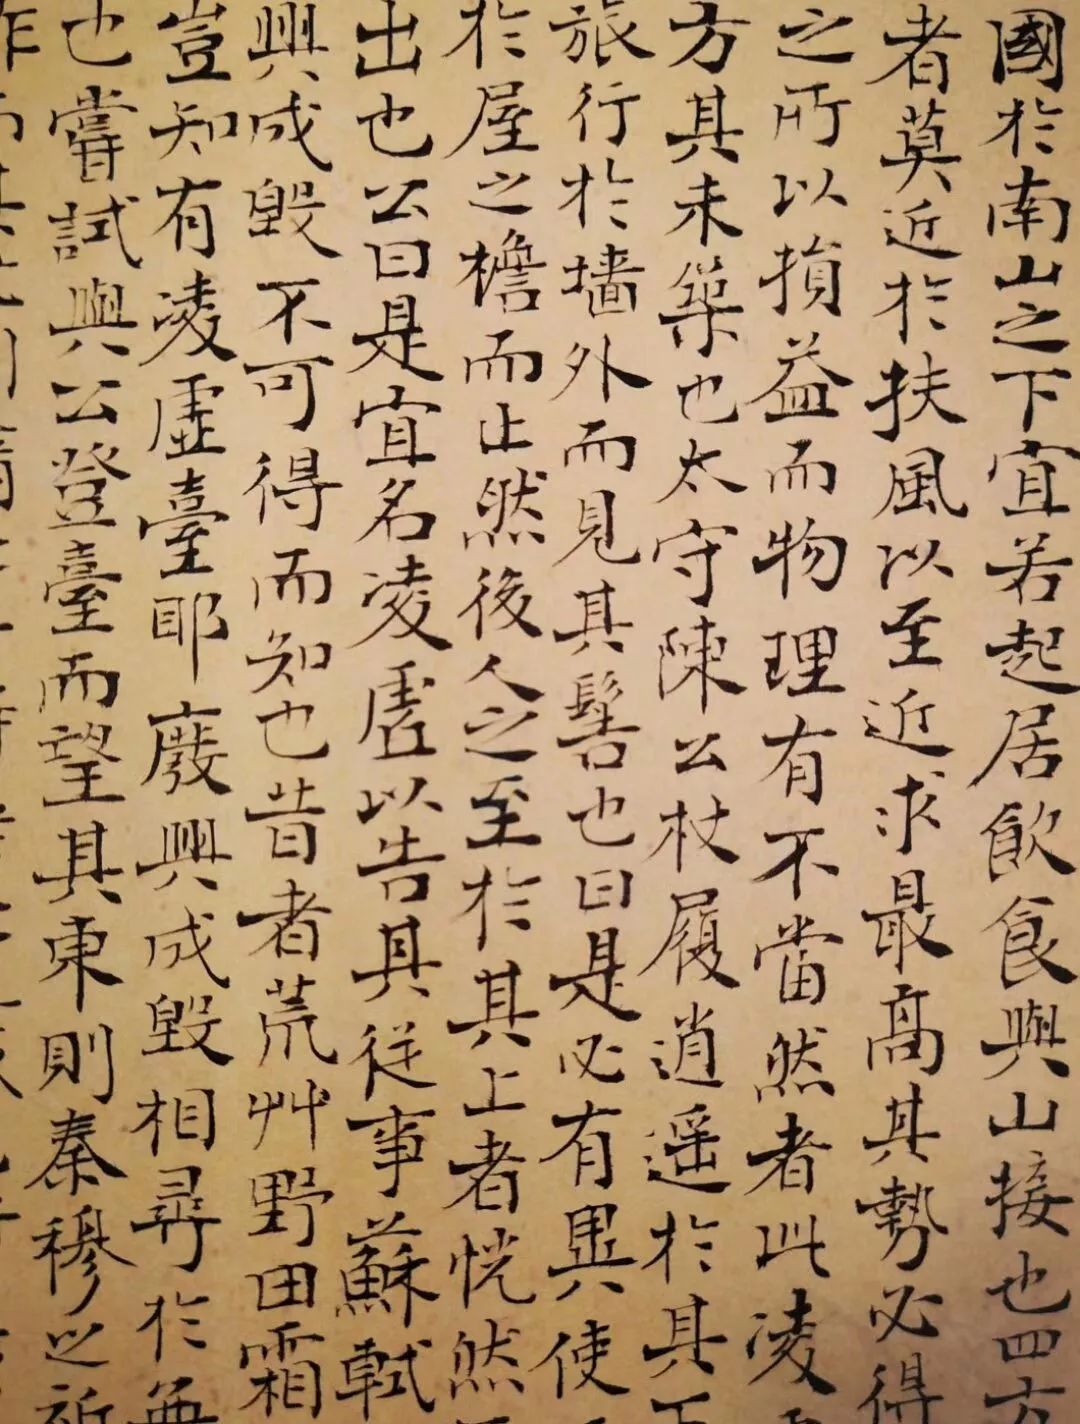 國於南山之下宜若起居飲食與山接也四方
者莫近於扶風以至近求最高其勢必得
之所以損益而物理有不當然者此凌
方其未築也太守陳公杖履逍遥於其下
旅行於墙外而見其髻也曰是必有異使
於屋之檐而止然後人之至於其上者恍然
出也公曰是宜名凌虛以告其從事蘇軾
興成毀不可得而知也昔者荒艸野田霜
豈知有凌虛臺耶廢興成毀相尋於無
也嘗試與公登臺而望其東則秦穆之祈